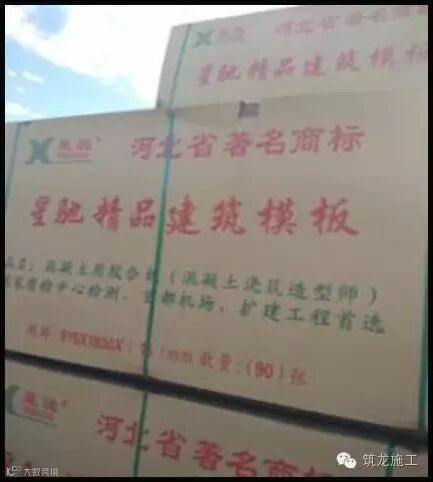 星驰
河北省著名商标
星驰精品建筑模板
星驰®
河北省著名商标
星驰精品建筑模板
品名：混凝土用胶合板（混凝土浇筑造型师）
国家质检中心检测．首都机场，扩建工程首选
规格：915X1830X( )mm 数量：(90)张
星驰®
河北省著名商标
筑龙施工
大数跨境